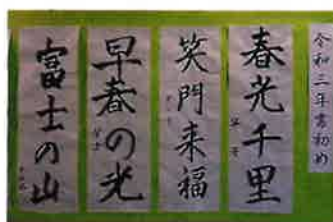 令和二年書初め
春光千里
笑門来福
早春の光
富士の山